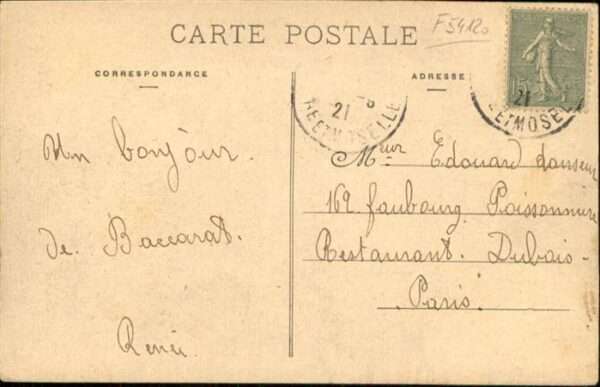 CARTE POSTALE
F 5412o
CORRESPONDANCE
ADRESSE
21
ET MOSELLE
15
21
ET MOSEL
Un bonjour.
de. Baccarat.
René.
Meur Edouard danseur
169 faubourg Poissonnière
Restaurant. Dubois-
Paris.